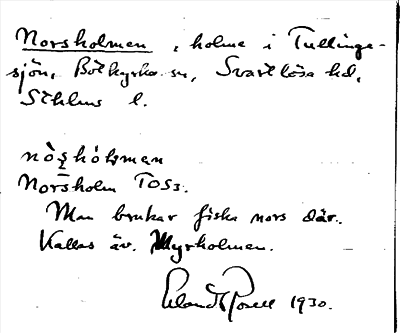 Norsholmen, holme i Tullinge-
sjön, Botkyrka sn, Svartlösa hd,
Sthlms l.
nòʂhòl̥man
Norsholm TOS3.
Man brukar fiska nors där.
Kallas äv. Myrholmen.
Erland Rosell 1930.